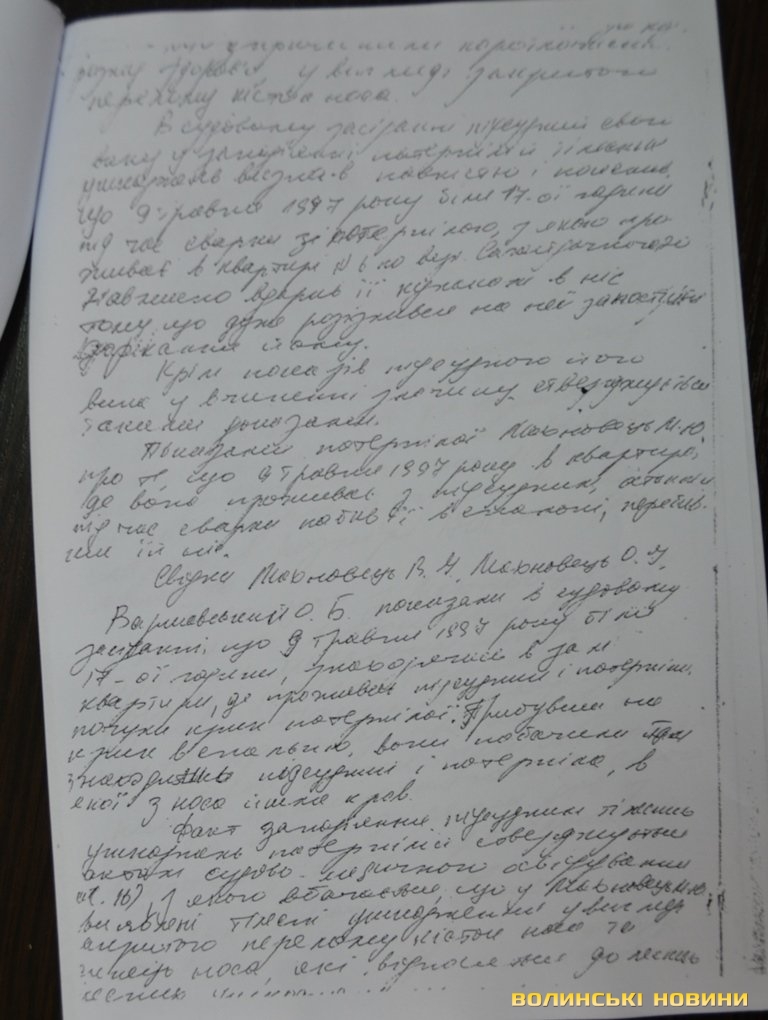 розладу здоров'я у вигляді закритого
перелому кісток носа.
В судовому засіданні підсудний свою
вину у заподіянні потерпілій тілесних
ушкоджень визнав повністю і пояснив,
що 9 травня 1997 року біля 17-ої години
під час сварки з потерпілою, з якою про-
живає в квартирі № 6 по вул.
вдарив її кулаком в ніс
тому, що дуже розізлився на неї за постійні
докікання йому.
Крім показів підсудного його
вина у вчиненні злочину стверджується
такими доказами.
Показами потерпілої Махновець М.Ю.
про те, що 9 травня 1997 року в квартирі,
де вона проживає з підсудним, останній
під час сварки побив її в спальні, перебив-
ши їй ніс.
Свідки Махновець В. Ч., Махновець О. У,
Варшевський О. Б. показали в судовому
засіданні, що 9 травня 1997 року біля
17-ої години, знаходячись в залі
квартири, де проживає підсудний і потерпіла,
почули крик потерпілої. Прибувши на
крик в спальню, вони побачили там
знаходились підсудний і потерпіла, в
якої з носа ішла кров.
Факт заподіяння підсудним тілесних
ушкоджень потерпілій стверджується
актом судово-медичного освідування
(а.с. 16), з якого вбачається, що у Махновець М.Ю.
виявлені тілесні ушкодження у вигляді
закритого перелому кісток носа та
носа, які відносяться до легких
тілесних
ВОЛИНСЬКІ НОВИНИ